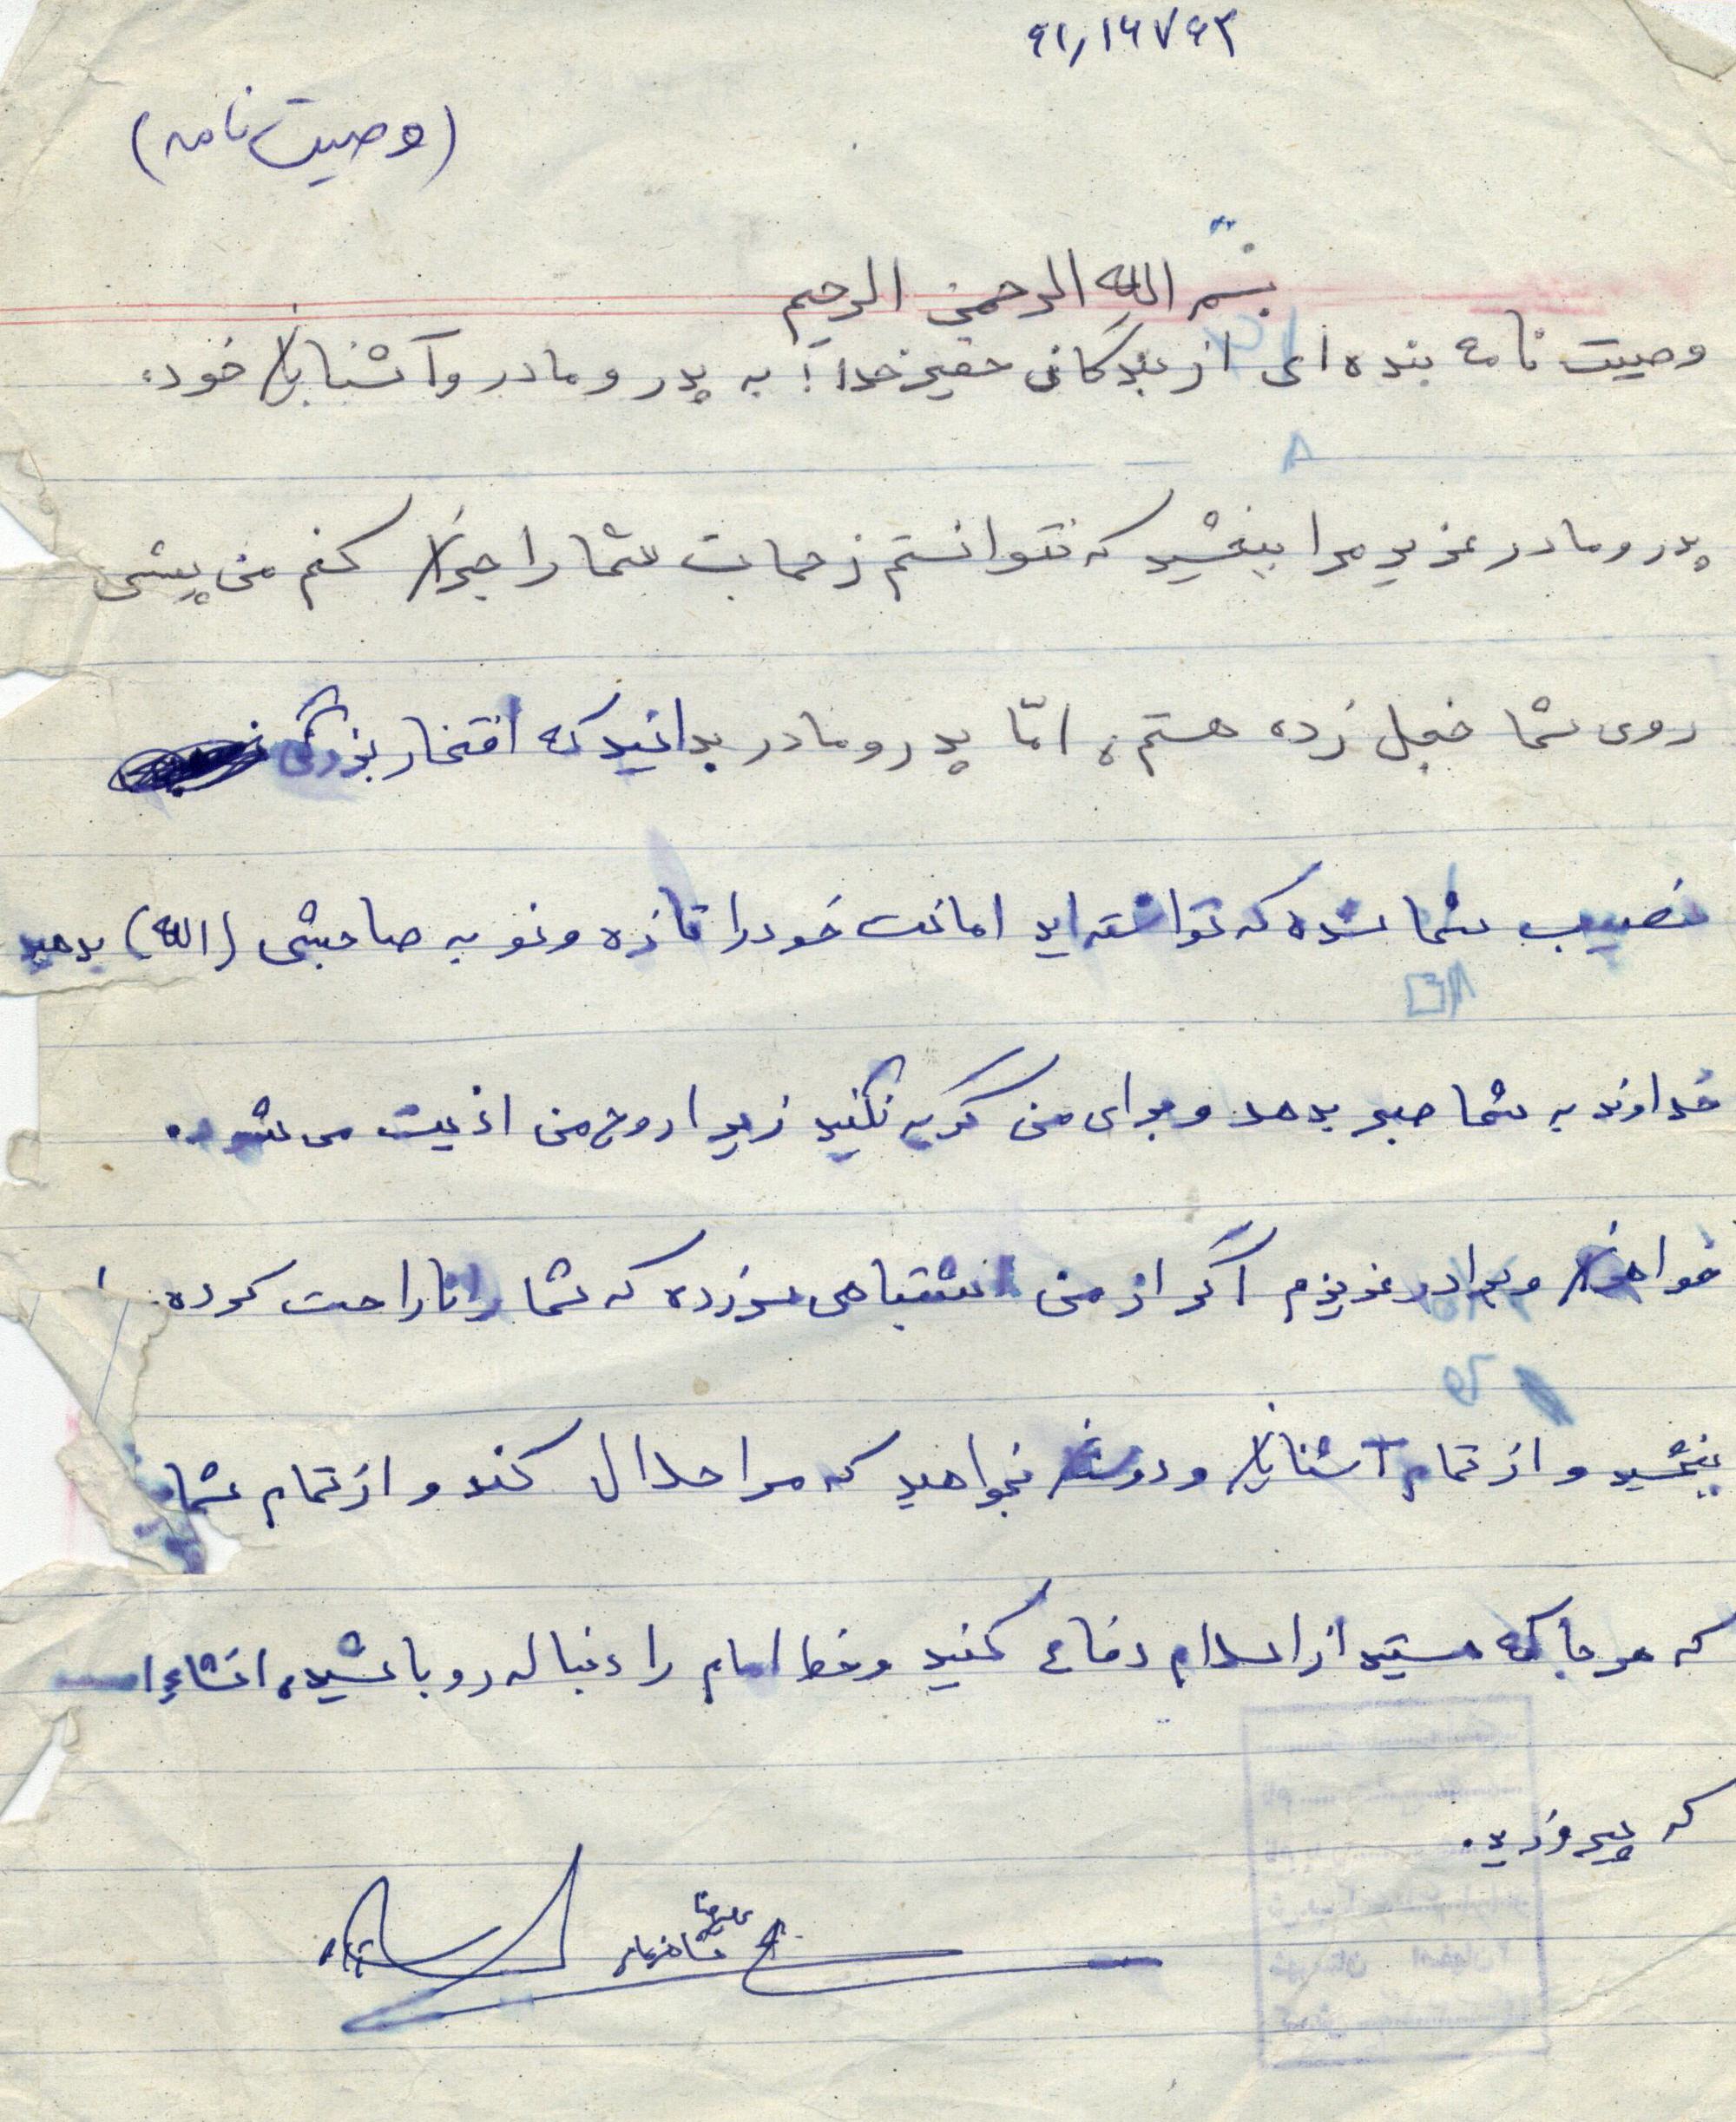 ۶۱٫۱۶۷۶۳
(وصیت نامه)
بسم الله الرحمن الرحیم
وصیت نامه بنده ای از بندگان حقیر خدا؛ به پدر و مادر و آشنایان خود،
پدر و مادر عزیز مرا ببخشید که نتوانستم زحمات شما را جبران کنم من پیش
روی شما خجل زده هستم، امّا پدر و مادر بدانید که افتخار بزرگی
نصیب شما شده که توانسته اید امانت خود را تازه و نو به صاحبش (الله) بدهید
خداوند به شما صبر بدهد و برای من گریه نکنید زیرا روح من اذیت می شود.
خواهران و برادر عزیزم اگر از من اشتباهی سرزده که شما را ناراحت کرده
ببخشید و از تمام آشنایان و دوستان بخواهید که مرا حلال کند و از تمام شما
که هر جا که هستید از اسلام دفاع کنید و خط امام را دنباله رو باشید، انشاء
که پیروزید.
علیرضا